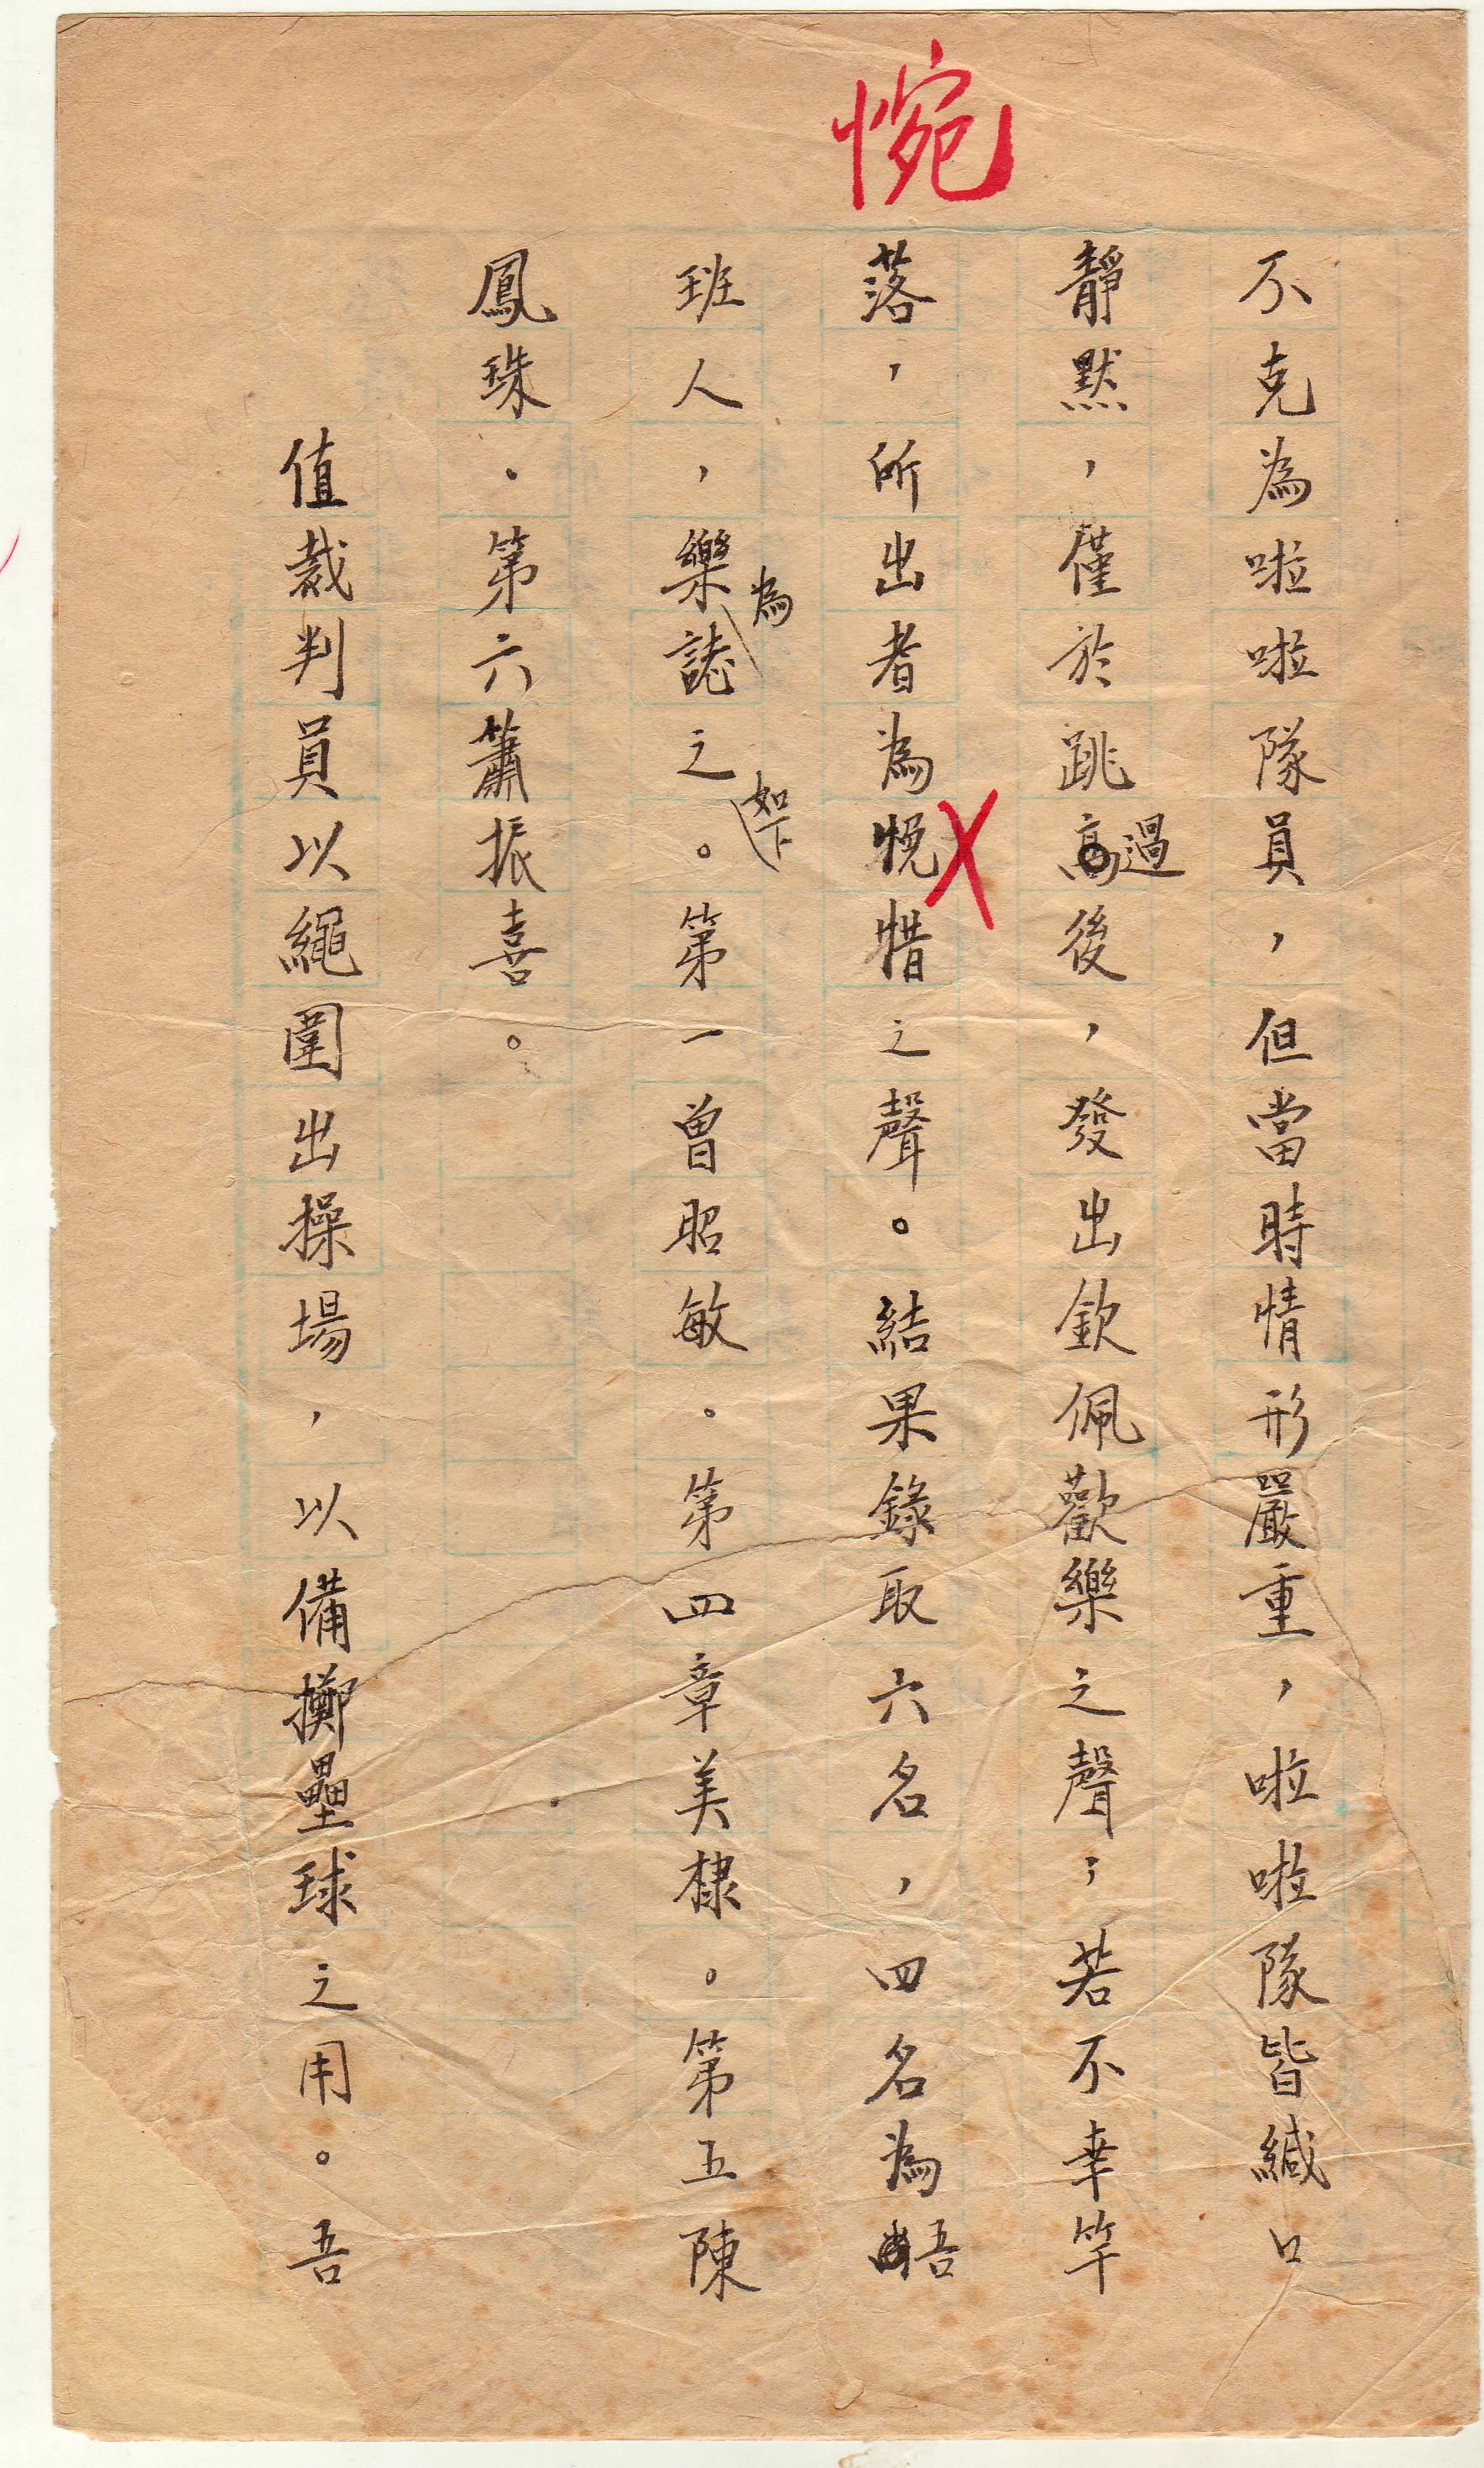 惋
不克為啦啦隊員，但當時情形嚴重，啦啦隊皆緘口
靜默，僅於跳過後，發出欽佩歡樂之聲；若不幸竿
落，所出者為悗惜之聲。結果錄取六名，四名為吾
班人，樂為誌之如下。第一曾昭敏．第四章美棣。第五陳
鳳珠．第六蕭振喜。
值裁判員以繩圍出操場，以備擲壘球之用。吾